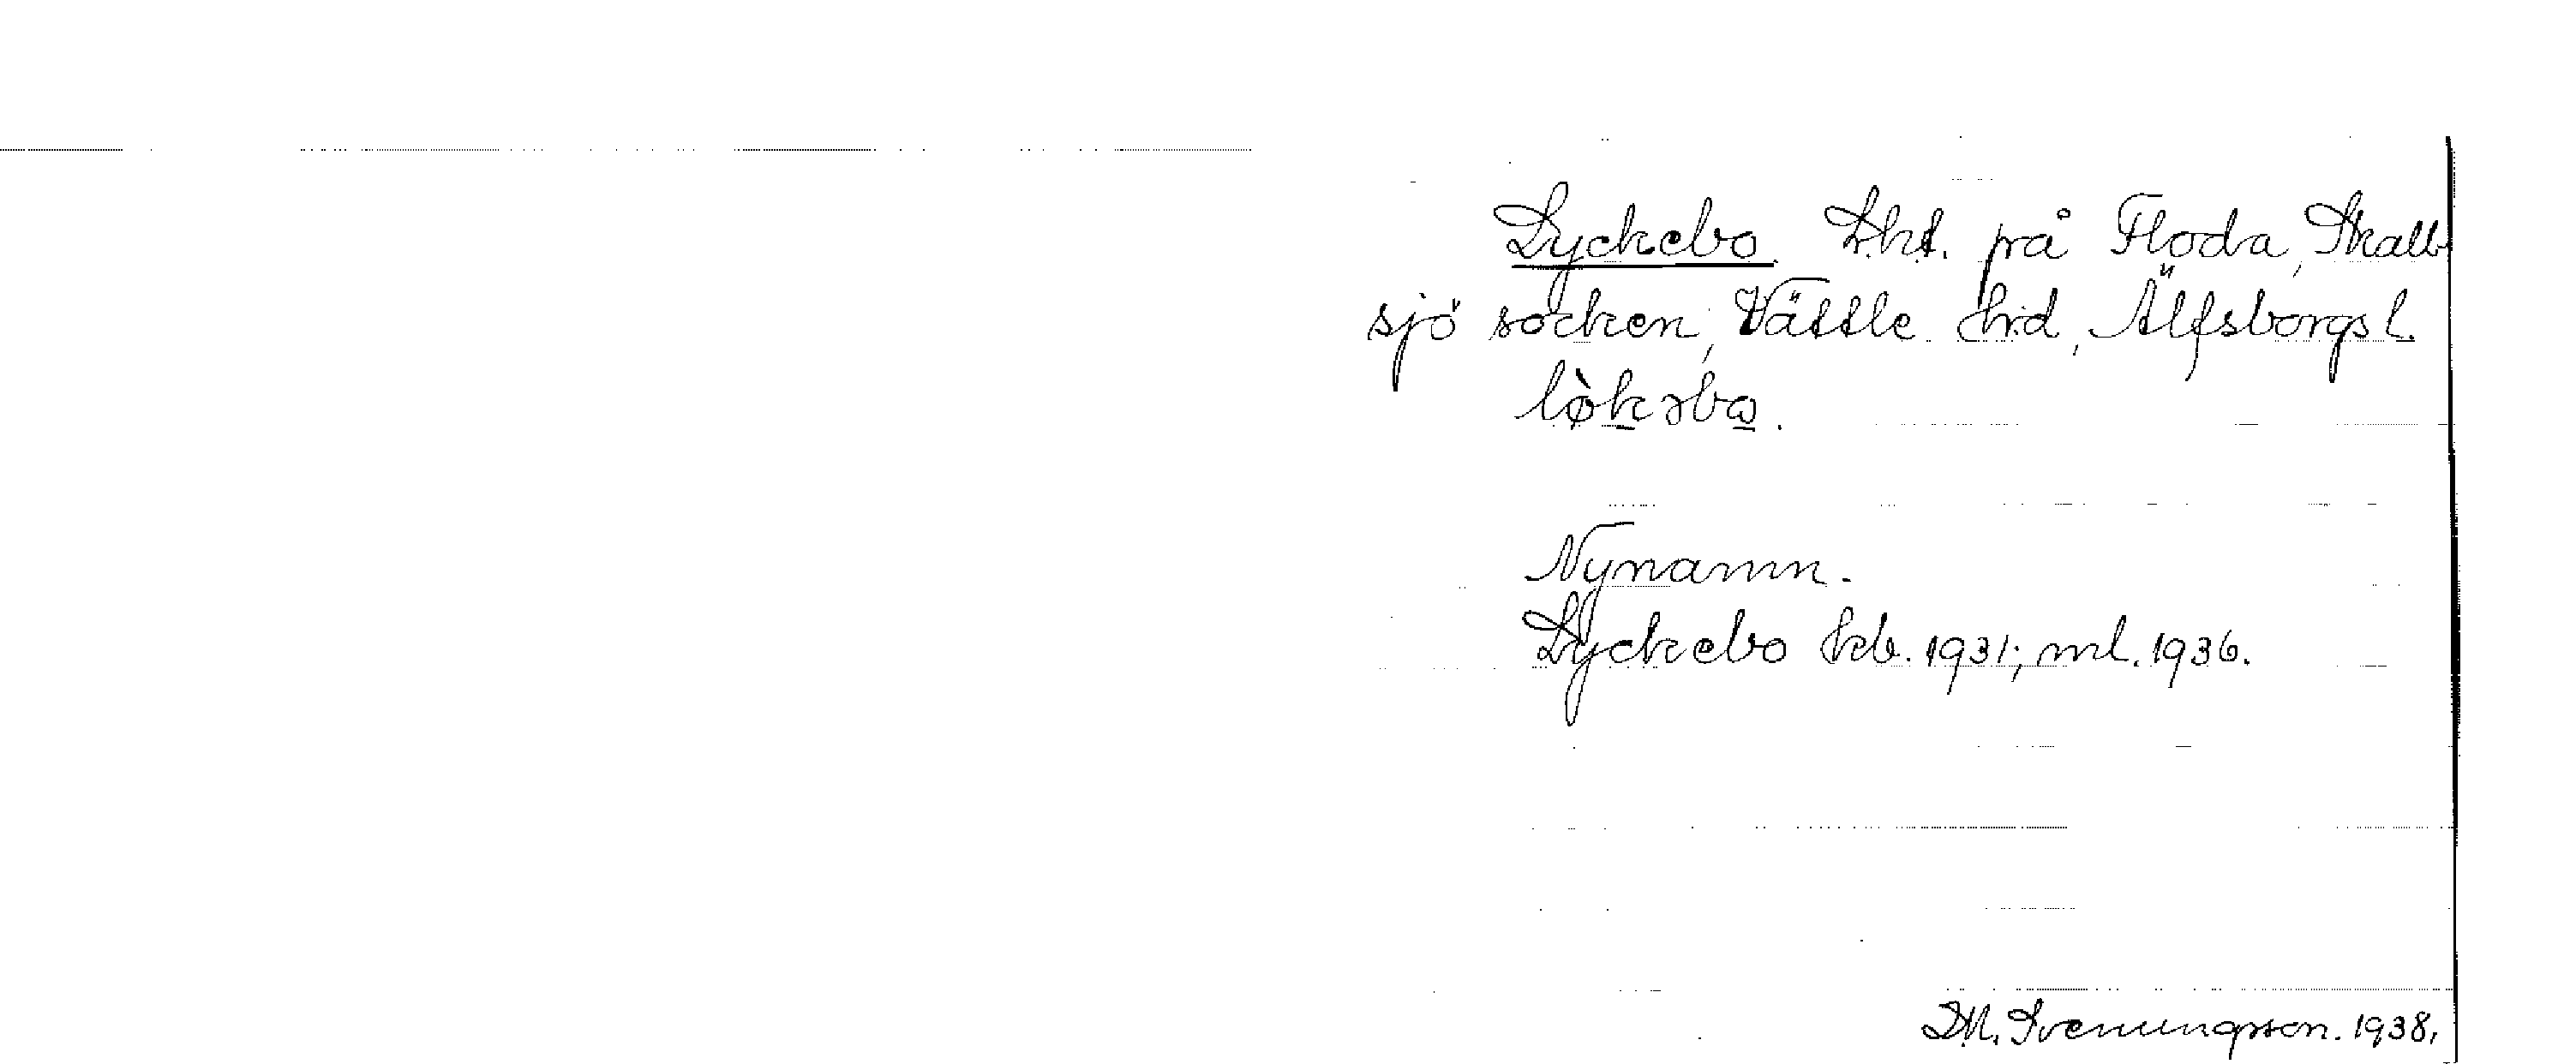 Lyckebo. Lht. på Floda, Skall-
sjö socken, Vättle hrd, Älfsborgs l.
lø̀kəbo.
Nynamn.
Lyckebo kb. 1931; ml. 1936.
Svenungsson. 1938.